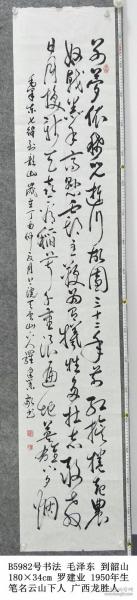 别夢依稀咒逝川故園三十二年前紅旗卷起農
奴戟黑手高懸霸主鞭為有犧牲多壯志敢教
日月換新天喜看稻菽千重浪遍地英雄下夕煙
毛澤東七律到韶山歲在丁酉仲夏月云山下人羅建業敬書
B5982号书法 毛泽东 到韶山
180×34cm 罗建业 1950年生
笔名云山下人 广西龙胜人